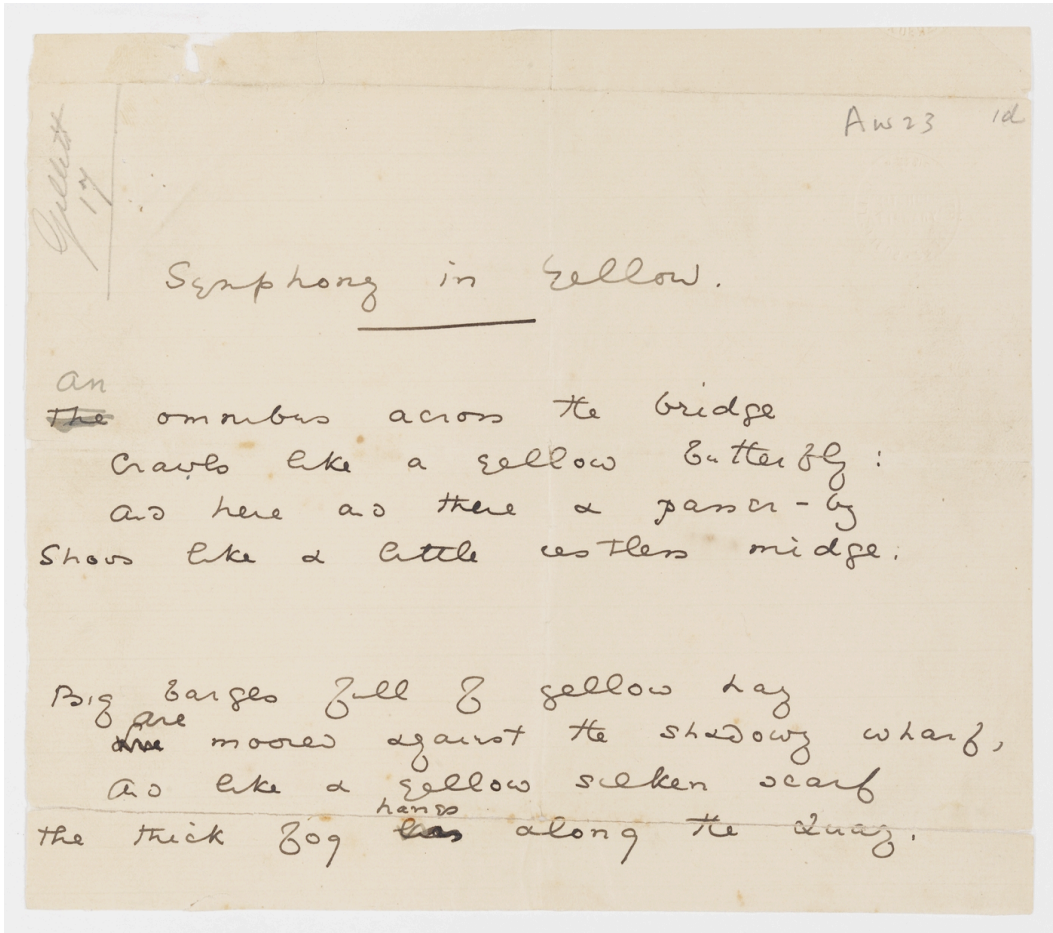 Aw23 1d
Gillett
17
Symphony in Yellow.
An
The omnibus across the bridge
Crawls like a yellow butterfly:
And here and there a passer-by
Shows like a little restless midge.
Big barges full of yellow hay
are
moored against the shadowy wharf,
And like a yellow silken scarf
hangs
The thick fog along the Quay.